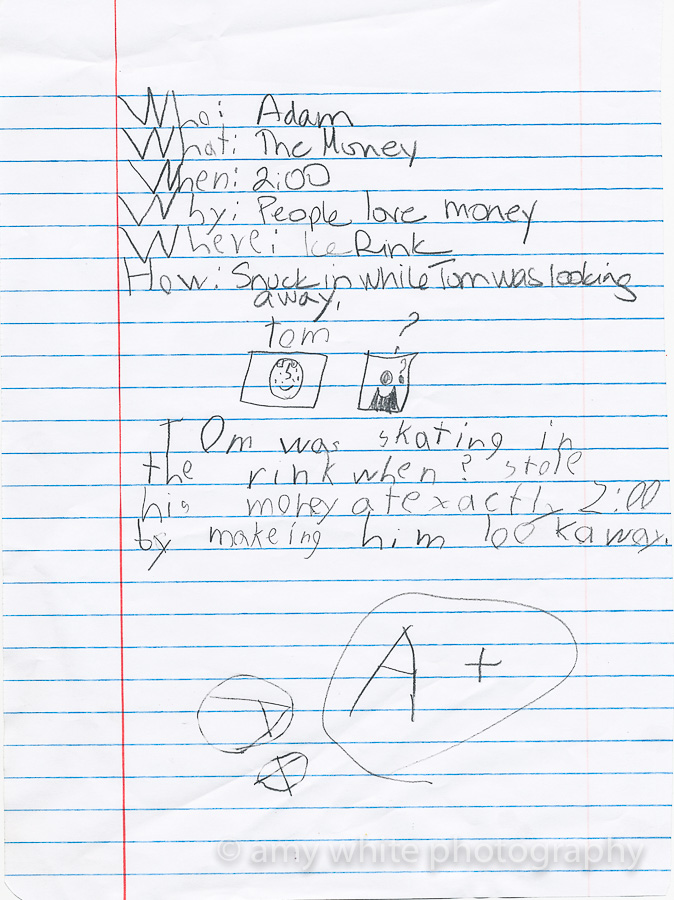 Who: Adam
What: The Money
When: 2:00
Why: People love money
Where: Ice Rink
How: Snuck in while Tom was looking
away.
Tom ?
?
TOm was skating in
the rink when ? stole
his money at exactly 2:00
by makeing him look away.
A+
© amy white photography